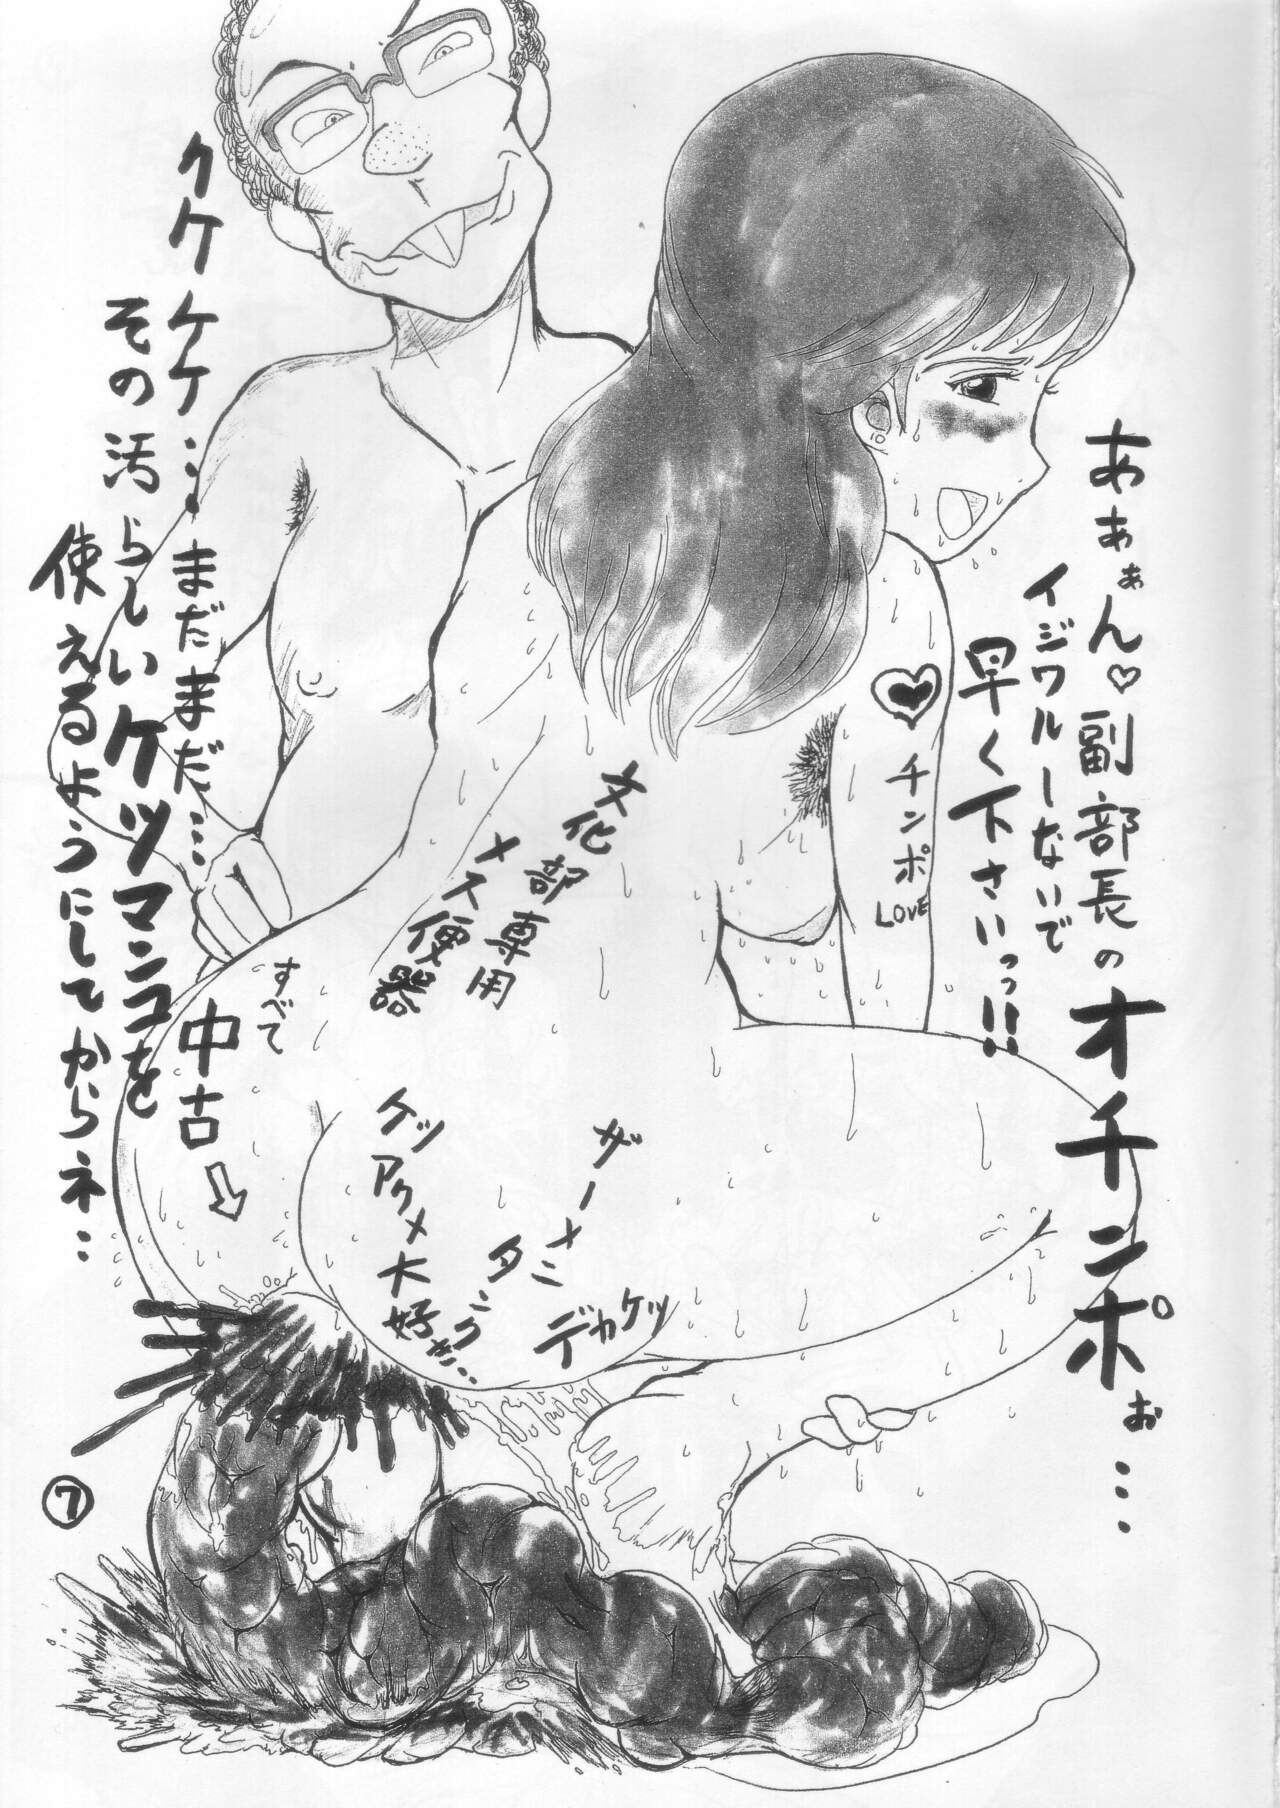 あぁぁん♡副部長の
オチンポぉ…
イジワルーないで
早く下さいっっ!!
クケケケケ…まだまだだ…
その汚らしいケツマンコを
使えるようにしてからネ…
チンポ
LOVE
文化部専用
メス便器
すべて
中古
ケツアクメ大好き…
ザーメン
タンク
デカケツ
⑦